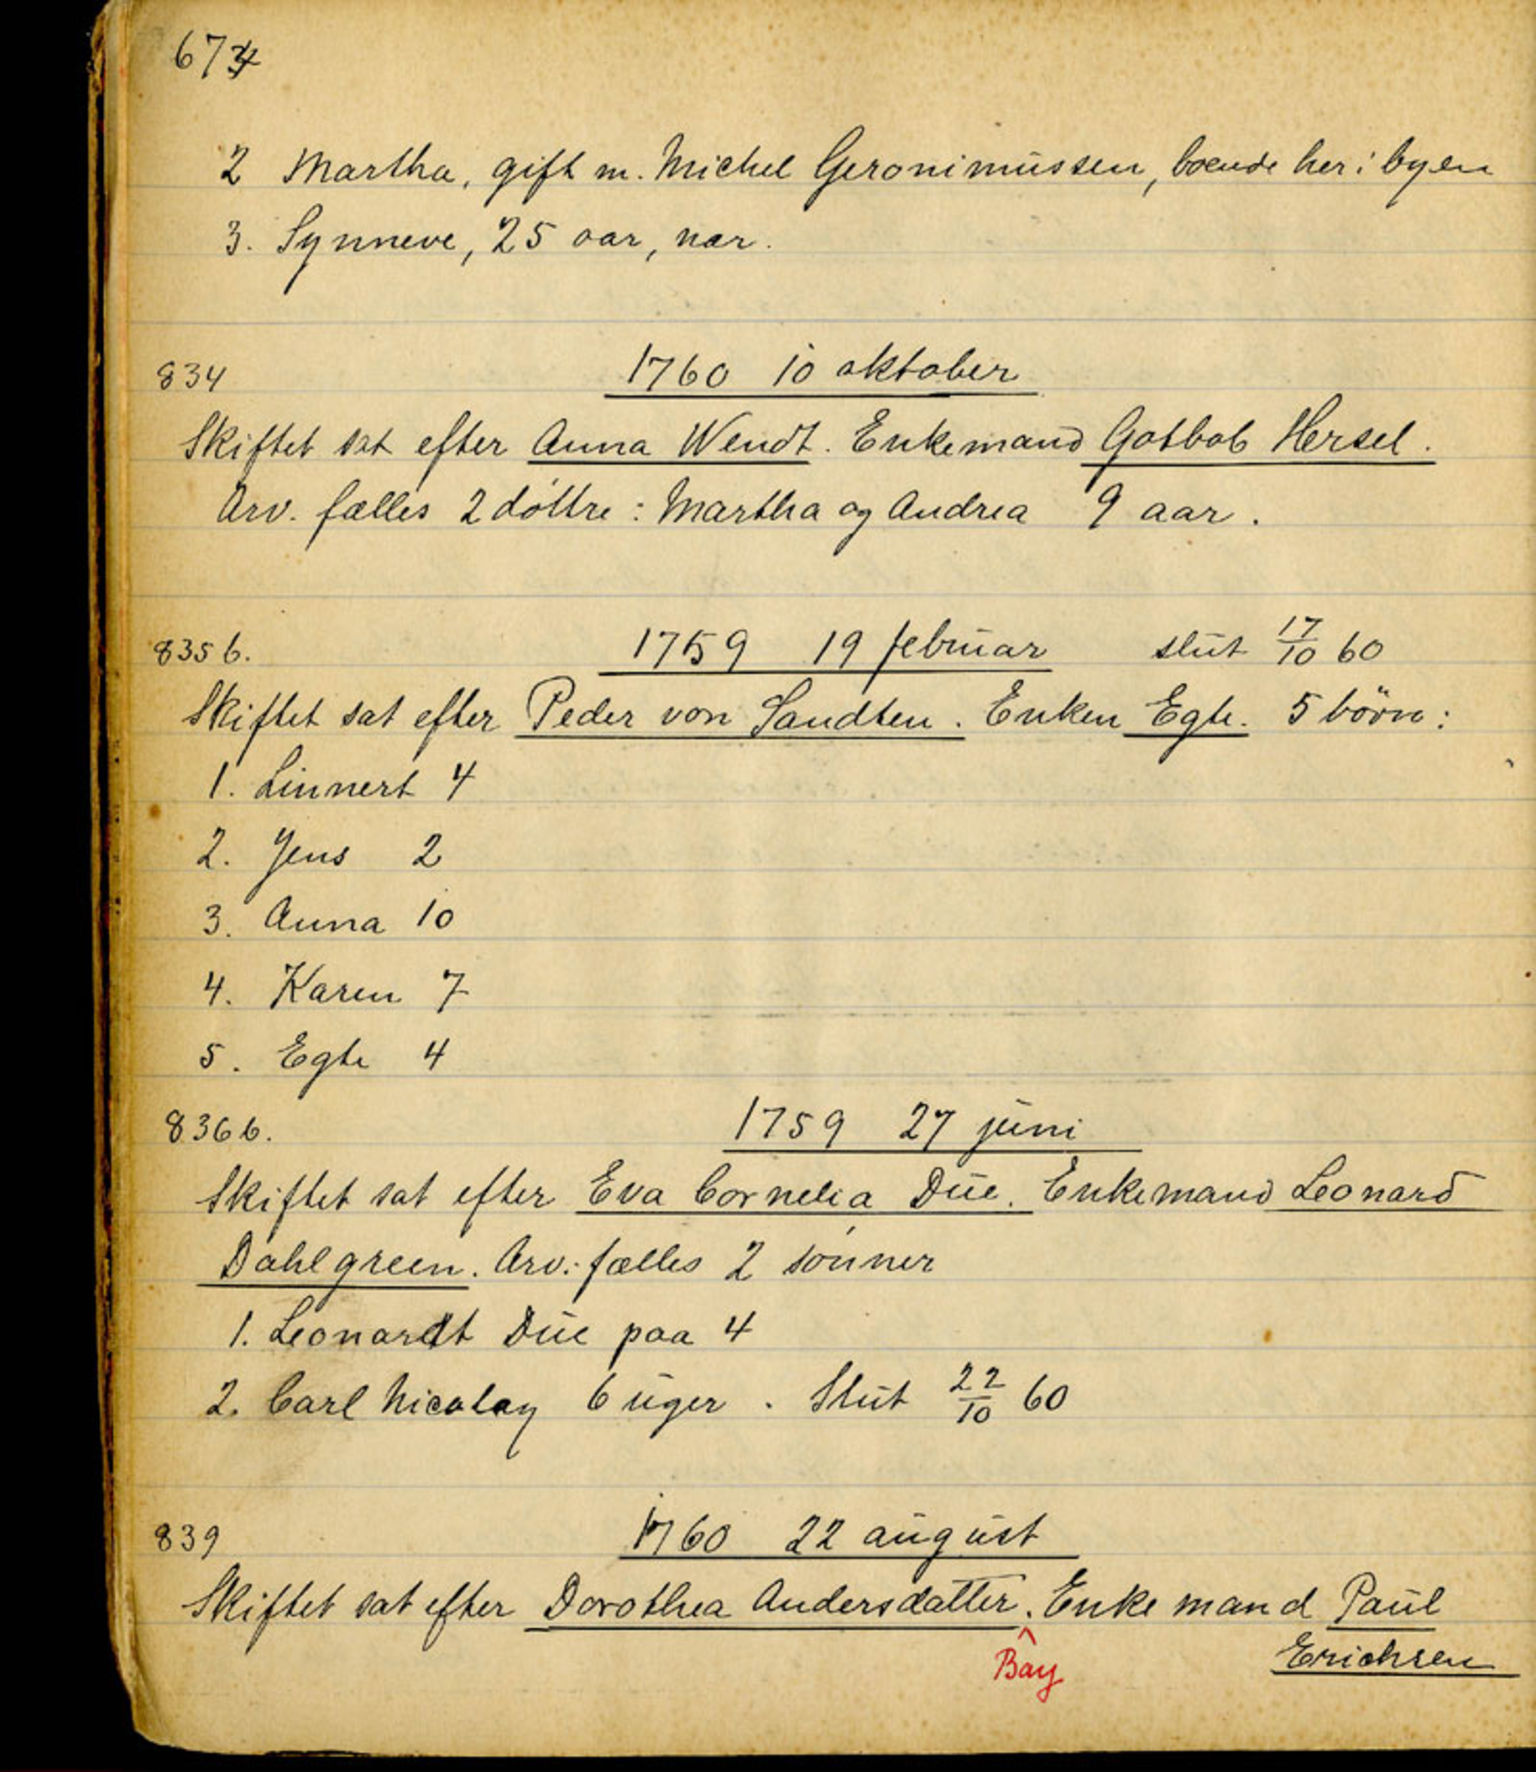 674
2 Martha, gift m. Michel Geronimussen, boende her i byen
3. Synneve, 25 aar, nær.
834 1760 10 oktober
Skiftet sat efter Anna Wendt. Enkemand Gotbob Hersel.
Arv. fælles 2 döttre: Martha og Andrea 9 aar.
835 b. 1759 19 februar slut 17/10 60
Skiftet sat efter Peder von Sandten. Enken Egte. 5 börn:
1. Linnert 4
2. Jens 2
3. Anna 10
4. Karen 7
5. Egte 4
836 b. 1759 27 juni
Skiftet sat efter Eva Cornelia Düe. Enkemand Leonard
Dahlgreen. Arv: fælles 2 sönner
1. Leonardt Düe paa 4
2. Carl Nicolay 6 uger. Slut 22/10 60
839 1760 22 august
Skiftet sat efter Dorothea Andersdatter. Enkemand Paul
Bay Erichsen